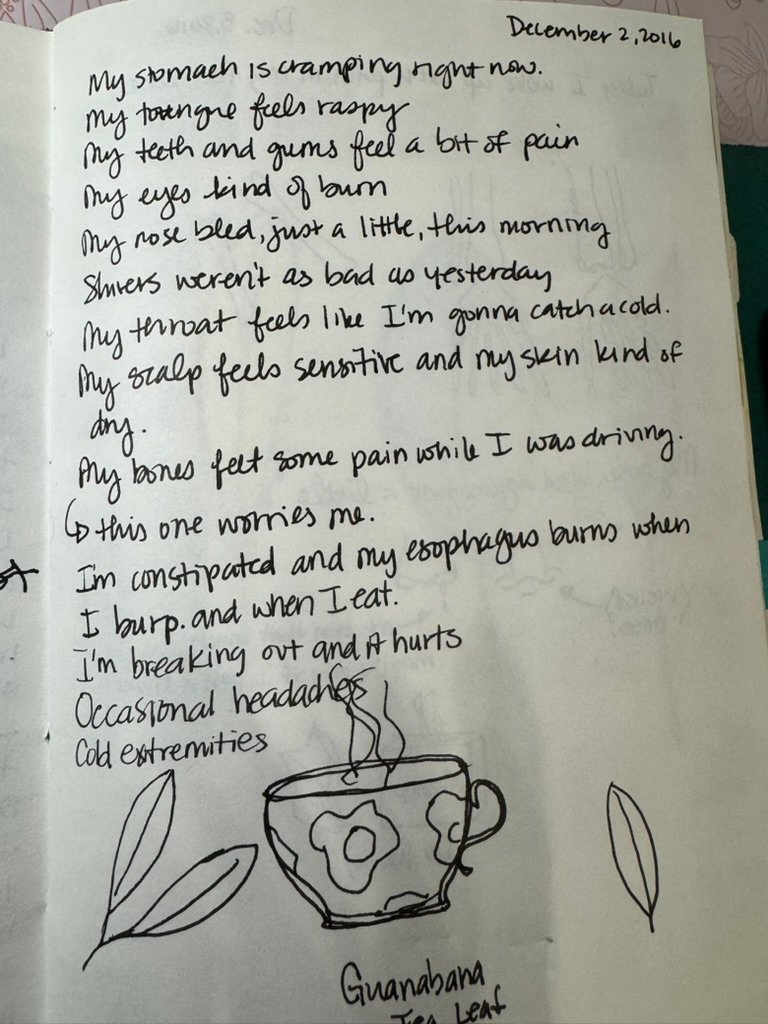 December 2, 2016
My stomach is cramping right now.
My toungue feels raspy
My teeth and gums feel a bit of pain
My eyes kind of burn
My nose bled, just a little, this morning
Shivers weren't as bad as yesterday
My throat feels like I'm gonna catch a cold.
My scalp feels sensitive and my skin kind of
dry.
My bones felt some pain while I was driving.
↳ this one worries me.
I'm constipated and my esophagus burns when
I burp. and when I eat.
I'm breaking out and it hurts
Occasional headaches
Cold extremities
Guanabana
Tea Leaf